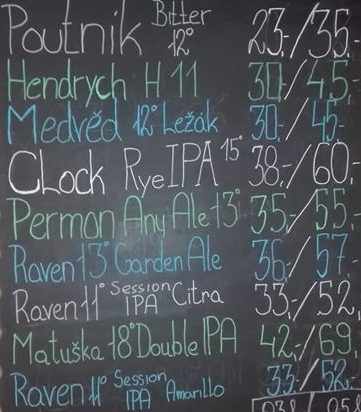 Poutník Bitter 12° 23,-/35,-
Hendrych H 11 30,-/45,-
Medvěd 12° Ležák 30,-/45,-
CLock Rye IPA 15° 38,-/60,
Permon Any Ale 13° 35,-/55.
Raven 13° Garden Ale 36,-/57.-
Raven 11° Session IPA Citra 33,-/52,
Matuška 18° Double IPA 42,-/69,
Raven 11° Session IPA Amarillo 33,-/52,-